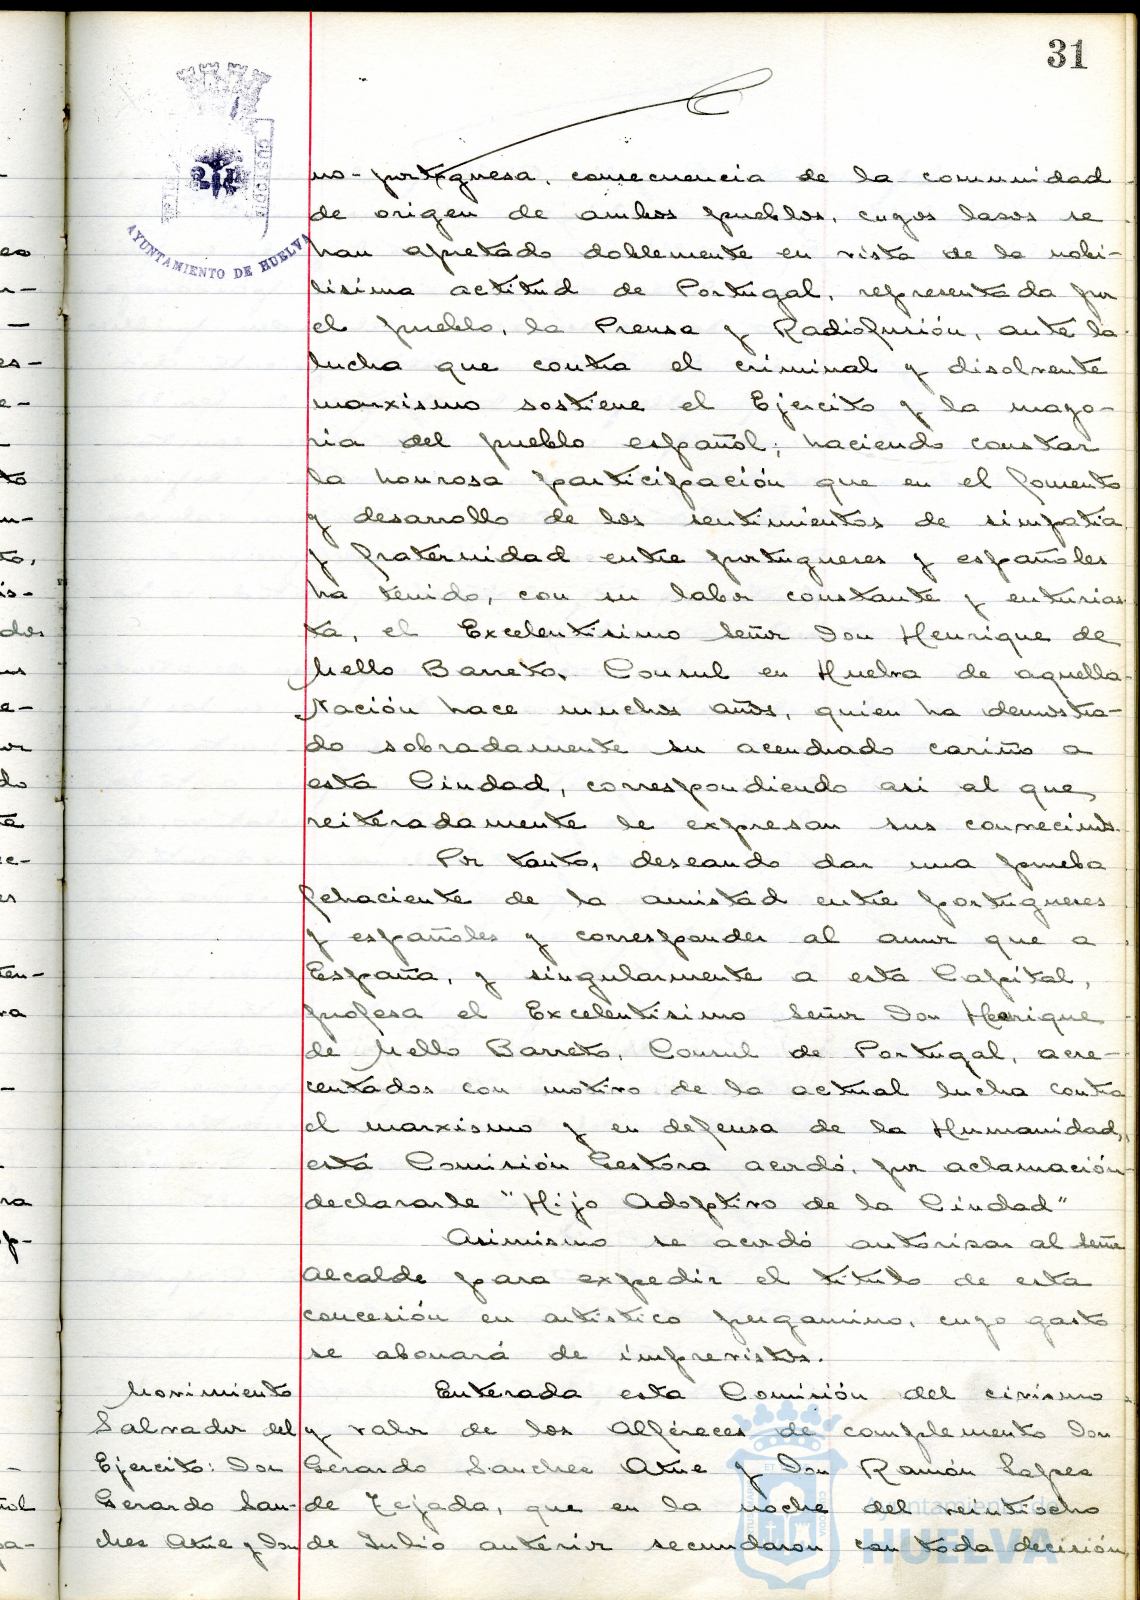 31
AYUNTAMIENTO DE HUELVA
no-portuguesa, consecuencia de la comunidad
de origen de ambos pueblos, cuyos lasos se
han apretado doblemente en vista de la nobi-
lisima actitud de Portugal, representada por
el pueblo, la Prensa y Radiofusión, ante la
lucha que contra el criminal y disolvente
marxismo sostiene el Ejercito y la mayo-
ria del pueblo español; haciendo constar
la honrosa participación que en el fomento
y desarrollo de los sentimientos de simpatia
y fraternidad entre portugueses y españoles
ha tenido, con su labor constante y entusias
ta, el Excelentisimo Señor Don Henrique de
Mello Barreto, Consul en Huelva de aquella
Nación hace muchos años, quien ha demostra-
do sobradamente su acendrado cariño a
esta Ciudad, correspondiendo asi al que
reiteradamente le expresan sus convecinos.
Por tanto, deseando dar una prueba
fehaciente de la amistad entre portugueses
y españoles y corresponder al amor que a
España, y singularmente a esta Capital,
profesa el Excelentisimo Señor Don Henrique
de Mello Barreto, Consul de Portugal, acre-
centados con motivo de la actual lucha contra
el marxismo y en defensa de la Humanidad,
esta Comisión Gestora acordó, por aclamación
declararle "Hijo Adoptivo de la Ciudad"
Asimismo se acordó autorisar al Señor
Alcalde para expedir el titulo de esta
concesión en artistico pergamino, cuyo gasto
se abonará de imprevistos.
Movimiento
Salvador del
Ejercito: Don
Gerardo San-
ches Ame y Don
Enterada esta Comisión del civismo
y valor de los Alféreces de complemento Don
Gerardo Sanches Ame y Don Ramón Lopes
de Tejada, que en la noche del veintiocho
de Julio anterior secundaron con toda decisión,
Ayuntamiento de
HUELVA